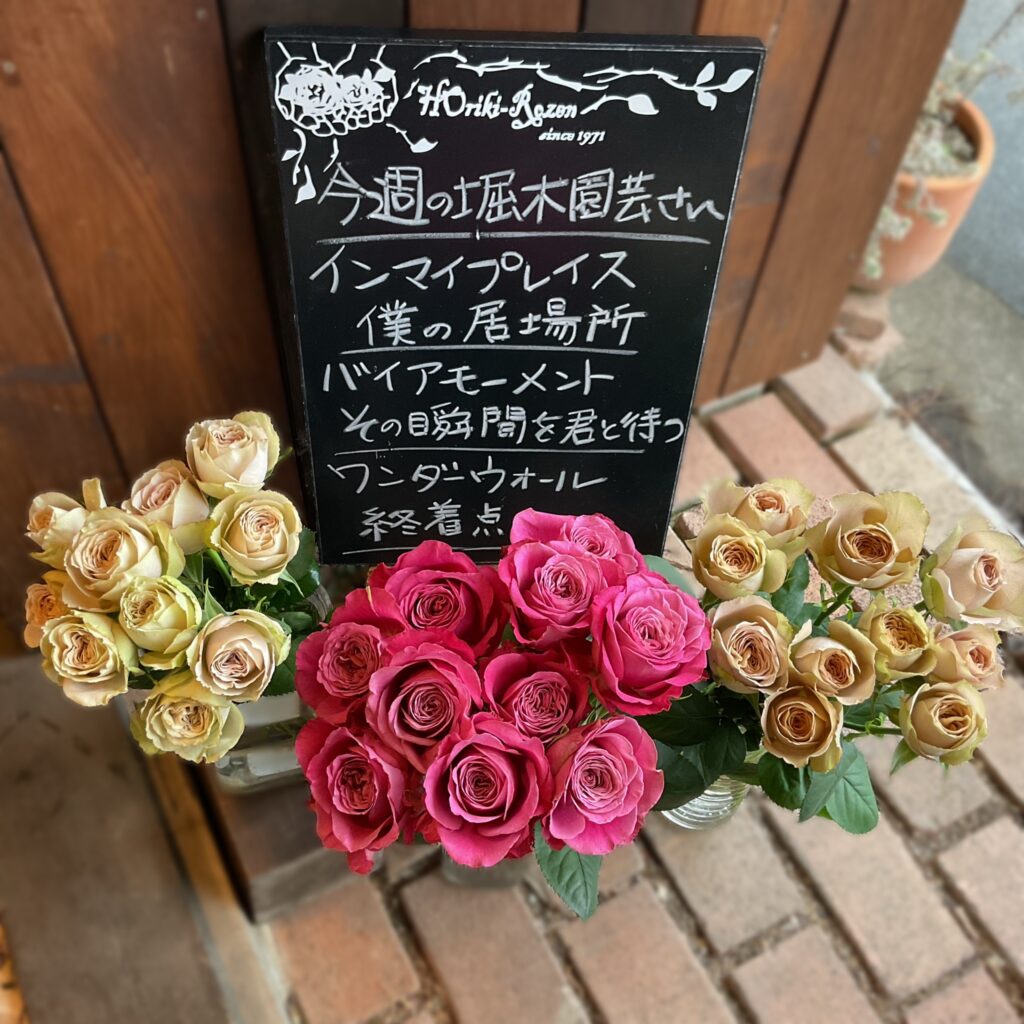 HOriki-Rozen
since 1971
今週の堀木園芸さん
インマイプレイス
僕の居場所
バイアモーメント
その瞬間を君と待つ
ワンダーウォール
終着点